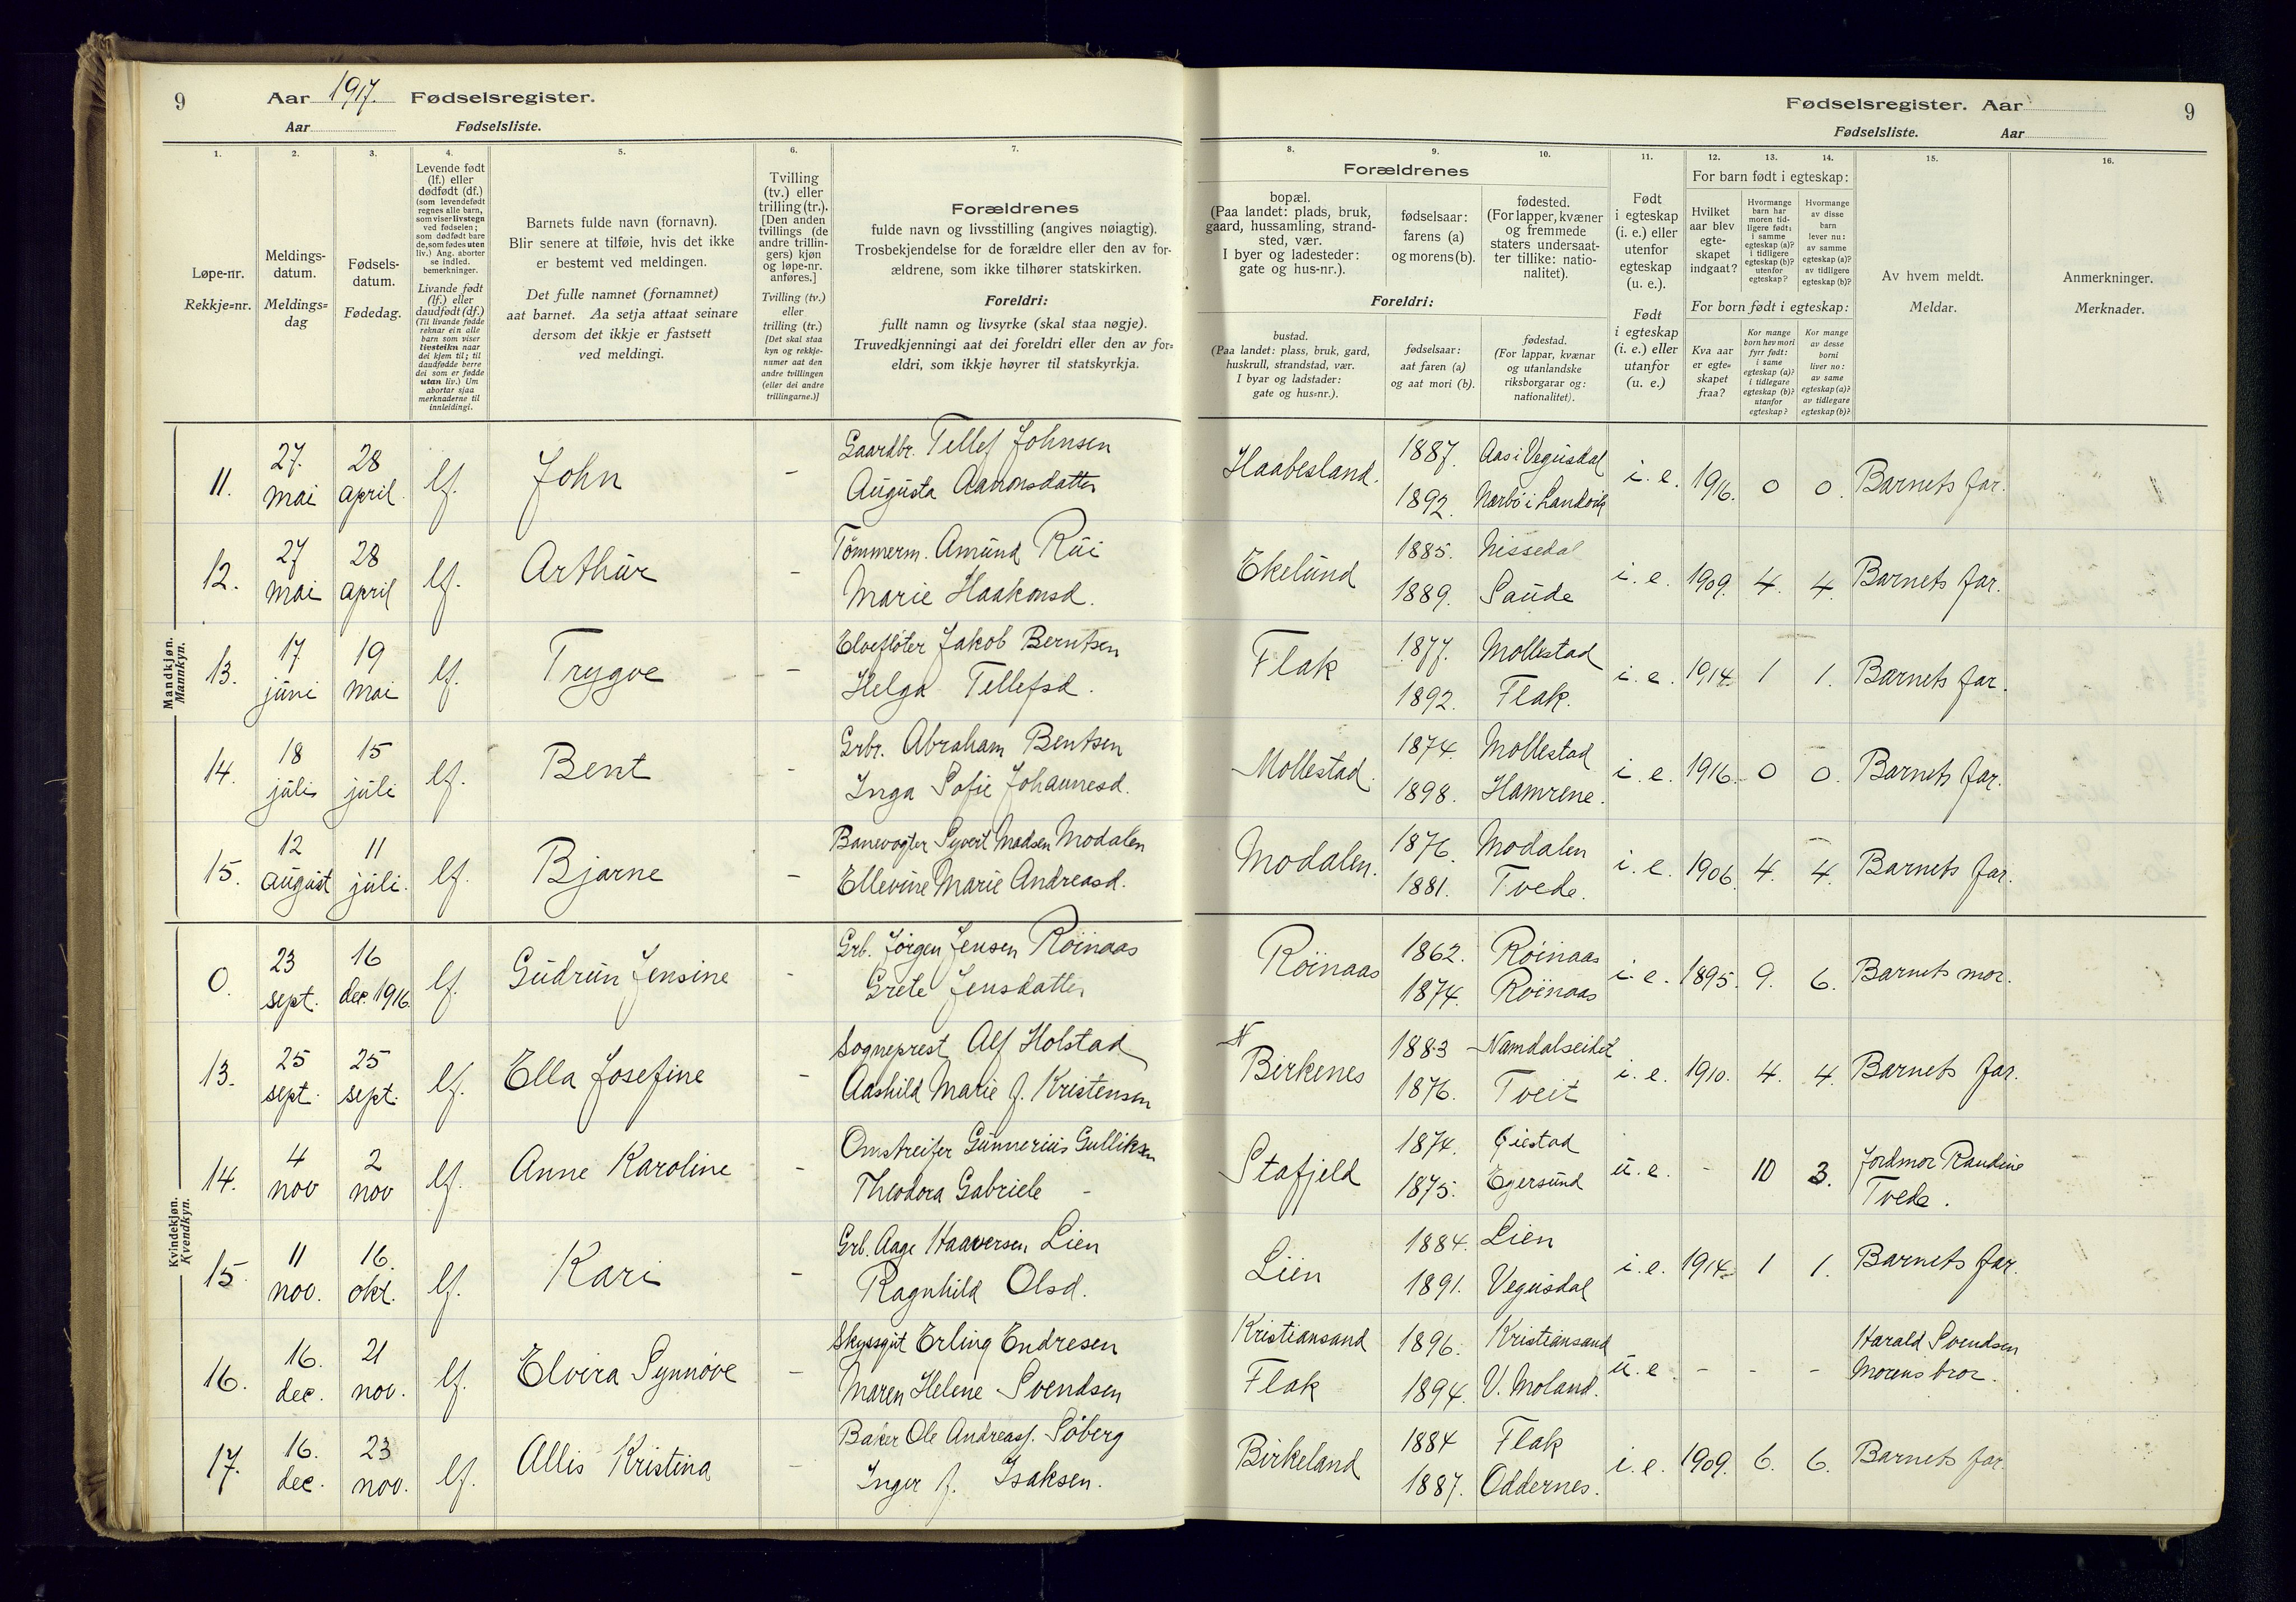 9
Aar 1917. Fødselsregister.
Aar Fødselsliste.
Fødselsregister. Aar
9
Fødselsliste. Aar
1.
Løpe-nr.
Rekkje=nr.
2.
Meldings-
datum.
Meldings=
dag
3.
Fødsels-
datum.
Fødedag.
4.
Levende født
(lf.) eller
dødfødt (df.)
(som levendefødt
regnes alle barn,
som viser livstegn
ved fødselen;
som dødfødt bare
de, som fødes uten
liv.) Ang. aborter
se indled.
bemerkninger.
Livande født
(lf.) eller
daudfødt (df.)
(Til livande fødde
reknar ein alle
barn som viser
livsteikn naar
dei kjem til; til
daudfødde berre
dei som er fødde
utan liv.) Um
abortar sjaa
merknaderne til
innleidingi.
5.
Barnets fulde navn (fornavn).
Blir senere at tilføie, hvis det ikke
er bestemt ved meldingen.
Det fulle namnet (fornamnet)
aat barnet. Aa setja attaat seinare
dersom det ikkje er fastsett
ved meldingi.
6.
Tvilling
(tv.) eller
trilling (tr.).
[Den anden
tvillings (de
andre trillin-
gers) kjøn
og løpe-nr.
anføres.]
Tvilling (tv.)
eller
trilling (tr.)
[Det skal staa
kyn og rekkje-
numer aat den
andre tvillingen
(eller dei andre
trillingarne.)]
7.
Forældrenes
fulde navn og livsstilling (angives nøiagtig).
Trosbekjendelse for de forældre eller den av for-
ældrene, som ikke tilhører statskirken.
Foreldri:
fullt namn og livsyrke (skal staa nøgje).
Truvedkjenningi aat dei foreldri eller den av for=
eldri, som ikkje høyrer til statskyrkja.
Forældrenes
8.
bopæl.
(Paa landet: plads, bruk,
gaard, hussamling, strand-
sted, vær.
I byer og ladesteder:
gate og hus-nr.).
Foreldri:
bustad.
(Paa landet: plass, bruk, gard,
huskrull, strandstad, vær.
I byar og ladstader:
gate og hus=nr.).
9.
fødselsaar:
farens (a)
og morens (b).
fødselsaar:
aat faren (a)
og aat mori (b).
10.
fødested.
(For lapper, kvæner
og fremmede
staters undersaat-
ter tillike: natio-
nalitet).
fødestad.
(For lappar, kvænar
og utanlandske
riksborgarar og:
nationalitet).
11.
Født
i egteskap
(i. e.) eller
utenfor
egteskap
(u. e.).
Født
i egteskap
(i. e.) eller
utanfor
(u. e.)
For barn født i egteskap:
12.
Hvilket
aar blev
egte-
skapet
indgaat?
For born født i egteskap:
Kva aar
er egte=
skapet
fraa?
13.
Hvormange
barn har
moren tid-
ligere født:
i samme
egteskap (a)?
i tidligere
egteskap (b)?
utenfor
egteskap?
Kor mange
born hev mori
fyrr født:
i same
egteskap (a)?
i tidlegare
egteskap (b)?
utanfor
egteskap?
14.
Hvormange
av disse
barn
lever nu:
av samme
egteskap (a)?
av tidligere
egteskap (b)?
Kor mange
av desse
borni
liver no:
av same
egteskap (a)?
av tidlegare
egteskap (b)?
15.
Av hvem meldt.
Meldar.
16.
Anmerkninger.
Merknader.
Mandkjøn.
Mannkyn.
11. 27. mai 28 april. lf. John - Gaardbr. Tellef Johnsen Haabesland. 1887. Aas i Vegusdal i. e. 1916. 0 0. Barnets far.
Augusta Aanonsdatter 1892. Nærbø i Landvik
12. 27 mai 28 april lf. Arthur - Tømmerm. Amund Rui Ekelund 1885. Nissedal i. e. 1909. 4. 4. Barnets far.
Marie Haakonsd. 1889. Saude
13. 17 juni 19 mai lf. Trygve - Elvefløter Jakob Berntsen Flak 1877. Mollestad i. e. 1914. 1 1. Barnets far.
Helga Tellefsd. 1892. Flak.
14. 18 juli 15 juli lf. Bent - Grbr. Abraham Bentsen Mollestad. 1874. Mollestad i. e. 1916. 0 0. Barnets far.
Inga Sofie Johannesd. 1898. Hamrene.
15. 12 august 11 juli. lf. Bjarne - Banevogter Syvert Madsen Modalen Modalen. 1876. Modalen i. e. 1906. 4. 4. Barnets far.
Ellevine Marie Andreasd. 1881. Tvede.
Kvindekjøn.
Kvendkyn.
0. 23 sept. 16 dec. 1916. lf. Gudrun Jensine - Grb. Jørgen Jensen Röinaas Röinaas 1862. Röinaas i. e. 1895. 9. 6. Barnets mor.
Grete Jensdatter 1874. Röinaas
13. 25 sept. 25 sept. lf. Ella Josefine - Sogneprest Alf Holstad N Birkenes 1883 Namdalseidet i. e. 1910. 4. 4. Barnets far.
Aashild Marie f. Kristensen 1876. Tveit
14. 4 nov 2 nov lf. Anne Karoline - Omstreifer Gunnerius Gulliksen Stafjeld 1874. u. e. - 10 3. Jordmor Raudine
Theodora Gabriele - 1875. Egersund Tvede.
15. 11 nov. 16. okt. lf. Kari - Grb. Aage Haaversen Lien Lien 1884. Lien i. e. 1914. 1 1. Barnets far.
Ragnhild Olsd. 1891. Vegusdal
16. 16. dec. 21 nov. lf. Elvira Synnøve - Skyssgut Erling Endresen Kristiansand 1896. Kristiansand u. e - - - Harald Svendsen
Maren Helene Svendsen Flak 1894. V. Moland. Morens bror.
17. 16. dec. 23 nov. lf. Allis Kristina - Baker Ole Andreass. Søberg Birkeland 1884 Flak i. e. 1909. 6. 6. Barnets far.
Inger f. Isaksen. 1887. Oddernes.